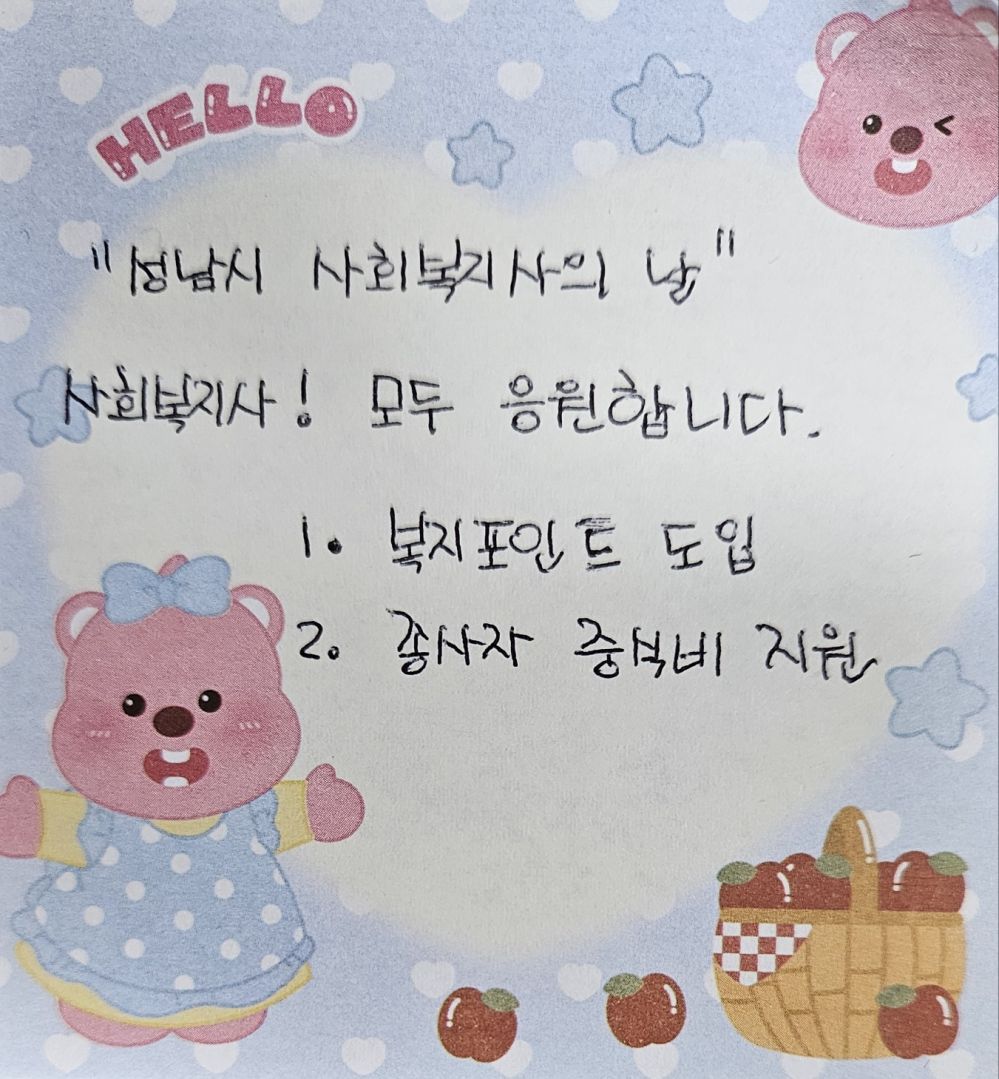 HELLO
"성남시 사회복지사의 날"
사회복지사! 모두 응원합니다.
1. 복지포인트 도입
2. 종사자 중식비 지원